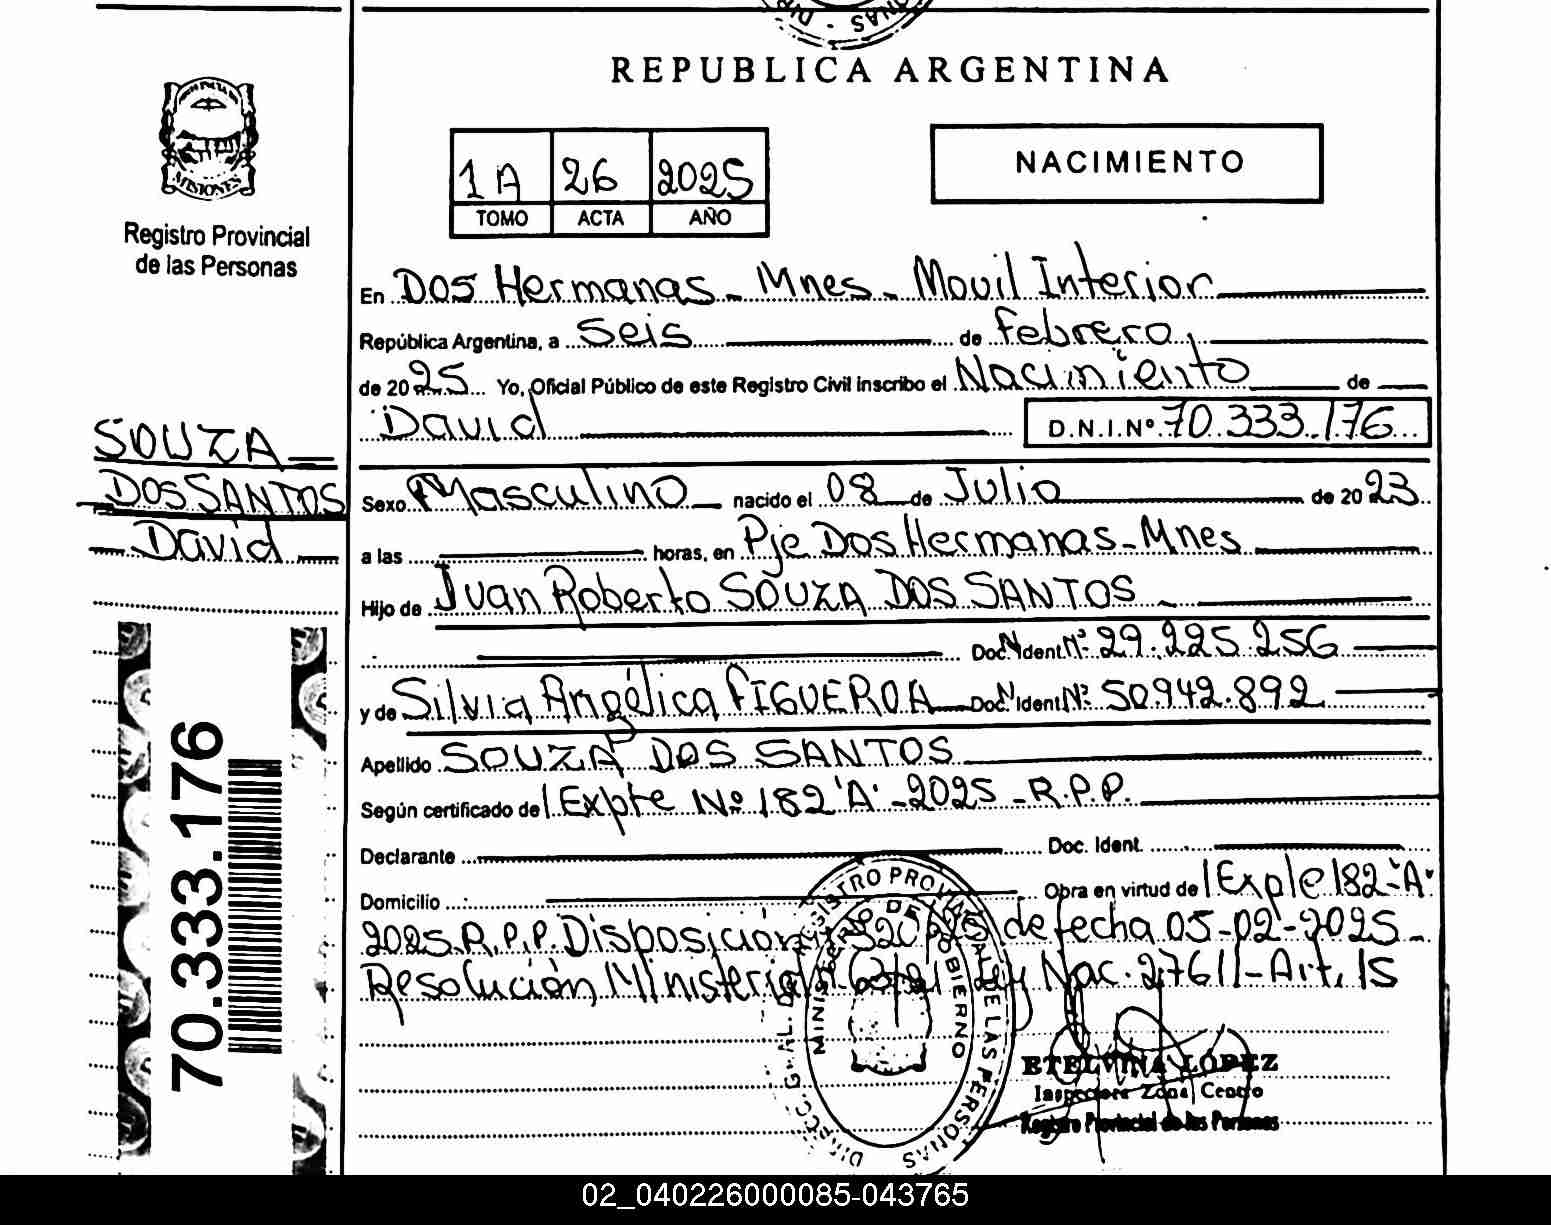 REPUBLICA ARGENTINA
MISIONES
Registro Provincial
de las Personas
1A 26 2025
TOMO ACTA AÑO
NACIMIENTO
En Dos Hermanas - Mnes - Movil Interior
República Argentina, a Seis de Febrero,
de 2025 Yo, Oficial Público de este Registro Civil inscribo el Nacimiento de
David D.N.I.Nº 70.333.176
SOUZA
DOS SANTOS
David
Sexo Masculino nacido el 08 de Julio de 2023
a las horas, en Pje Dos Hermanas - Mnes
Hijo de Juan Roberto SOUZA DOS SANTOS
Doc. Ident Nº 29.225.256
y de Silvia Angélica FIGUEROA Doc. Ident Nº 50.942.892
Apellido SOUZA DOS SANTOS
Según certificado de Expte Nº 182 "A" - 2025 - R.P.P.
Declarante Doc. Ident.
Domicilio Obra en virtud de Expte 182 - "A"
2025. R.P.P. Disposición 520/25 de fecha 05-02-2025 -
Resolución Ministerial Ley Nac. 27611 - Art. 15
70.333.176
MINISTERIO DE GOBIERNO
REGISTRO PROVINCIAL DE LAS PERSONAS
ETELVINA LÓPEZ
Inspectora Zona Centro
Registro Provincial de las Personas
02_040226000085-043765